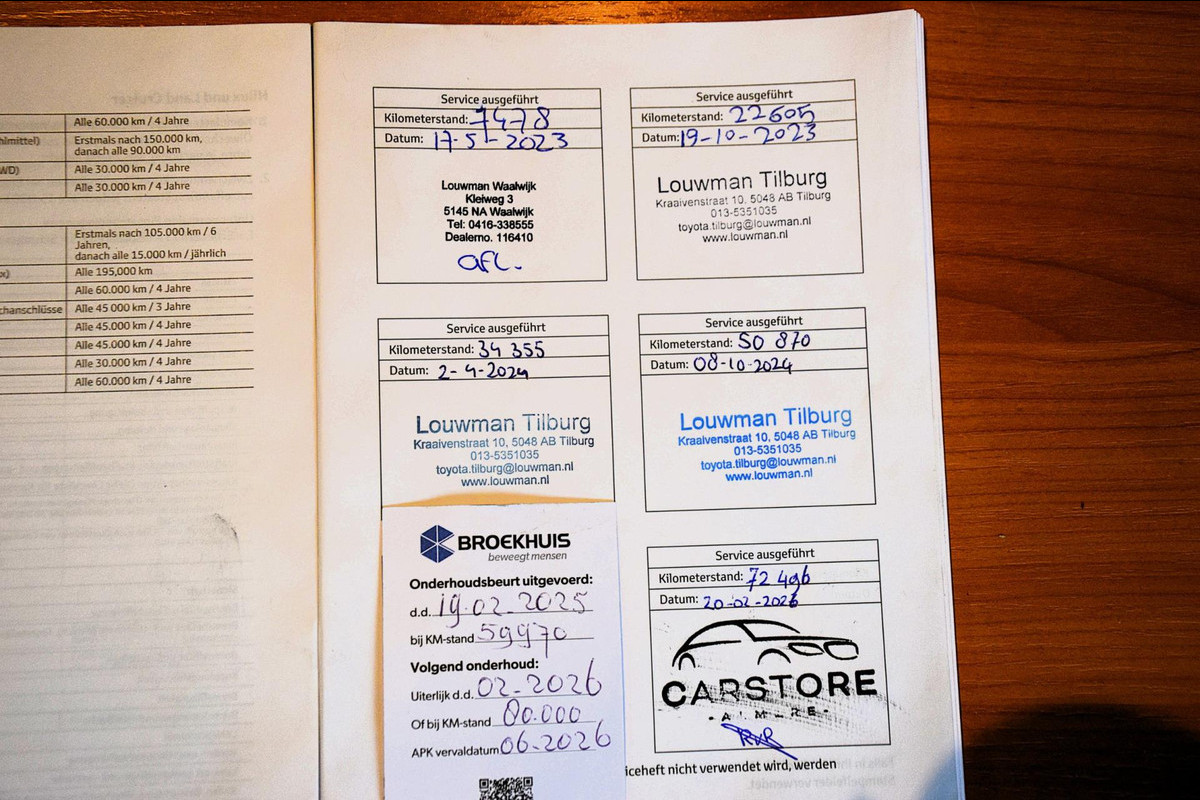 Alle 60.000 km / 4 Jahre
hlmittel) Erstmals nach 150.000 km,
danach alle 90.000 km
WD) Alle 30.000 km / 4 Jahre
Alle 30.000 km / 4 Jahre
Erstmals nach 105.000 km / 6
Jahren,
danach alle 15.000 km / jährlich
x) Alle 195,000 km
Alle 60.000 km / 4 Jahre
chanschlüsse Alle 45 000 km / 3 Jahre
Alle 45.000 km / 4 Jahre
Alle 45.000 km / 4 Jahre
Alle 30.000 km / 4 Jahre
Alle 60.000 km / 4 Jahre
Service ausgeführt
Kilometerstand: 7478
Datum: 17-5-2023
Louwman Waalwijk
Kleiweg 3
5145 NA Waalwijk
Tel: 0416-338555
Dealerno. 116410
afl.
Service ausgeführt
Kilometerstand: 22605
Datum: 19-10-2023
Louwman Tilburg
Kraaivenstraat 10, 5048 AB Tilburg
013-5351035
toyota.tilburg@louwman.nl
www.louwman.nl
Service ausgeführt
Kilometerstand: 34 355
Datum: 2-4-2024
Louwman Tilburg
Kraaivenstraat 10, 5048 AB Tilburg
013-5351035
toyota.tilburg@louwman.nl
www.louwman.nl
Service ausgeführt
Kilometerstand: 50 870
Datum: 08-10-2024
Louwman Tilburg
Kraaivenstraat 10, 5048 AB Tilburg
013-5351035
toyota.tilburg@louwman.nl
www.louwman.nl
BROEKHUIS
beweegt mensen
Onderhoudsbeurt uitgevoerd:
d.d. 19-02-2025
bij KM-stand 59970
Volgend onderhoud:
Uiterlijk d.d. 02-2026
Of bij KM-stand 80.000
APK vervaldatum 06-2026
Service ausgeführt
Kilometerstand: 72 496
Datum: 20-02-2026
CARSTORE
RvR
iceheft nicht verwendet wird, werden